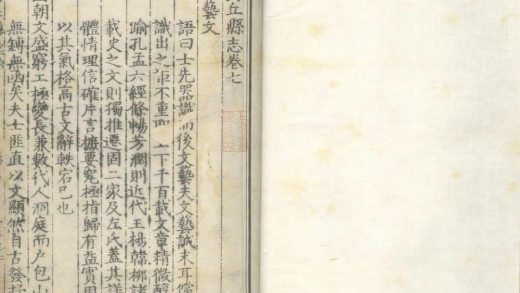 丘縣志卷七
藝文
語曰士先器識而後文藝夫文藝誠末耳儻
識出之詎不重耶上下千百載文章精微醇
踰孔孟六經條暢芳潤則近代王楊韓柳諸
載史之文則獨推遷固二家及左氏蓋其詳
體情理信確片言撮要究極指歸有益實用
以其氣格高古文辭軼宕已也
朝文盛窮工極變長兼數代人洞庭而戶包山
無鏄無函矣夫士匪直以文顯然自古發